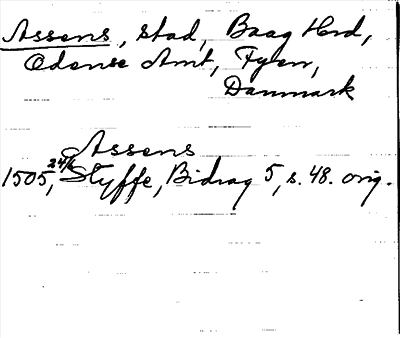 Assens, stad, Baag Herd,
Odense Amt, Fyen,
Danmark
Assens
1505, 24/6 Styffe, Bidrag 5, s. 48. orig.